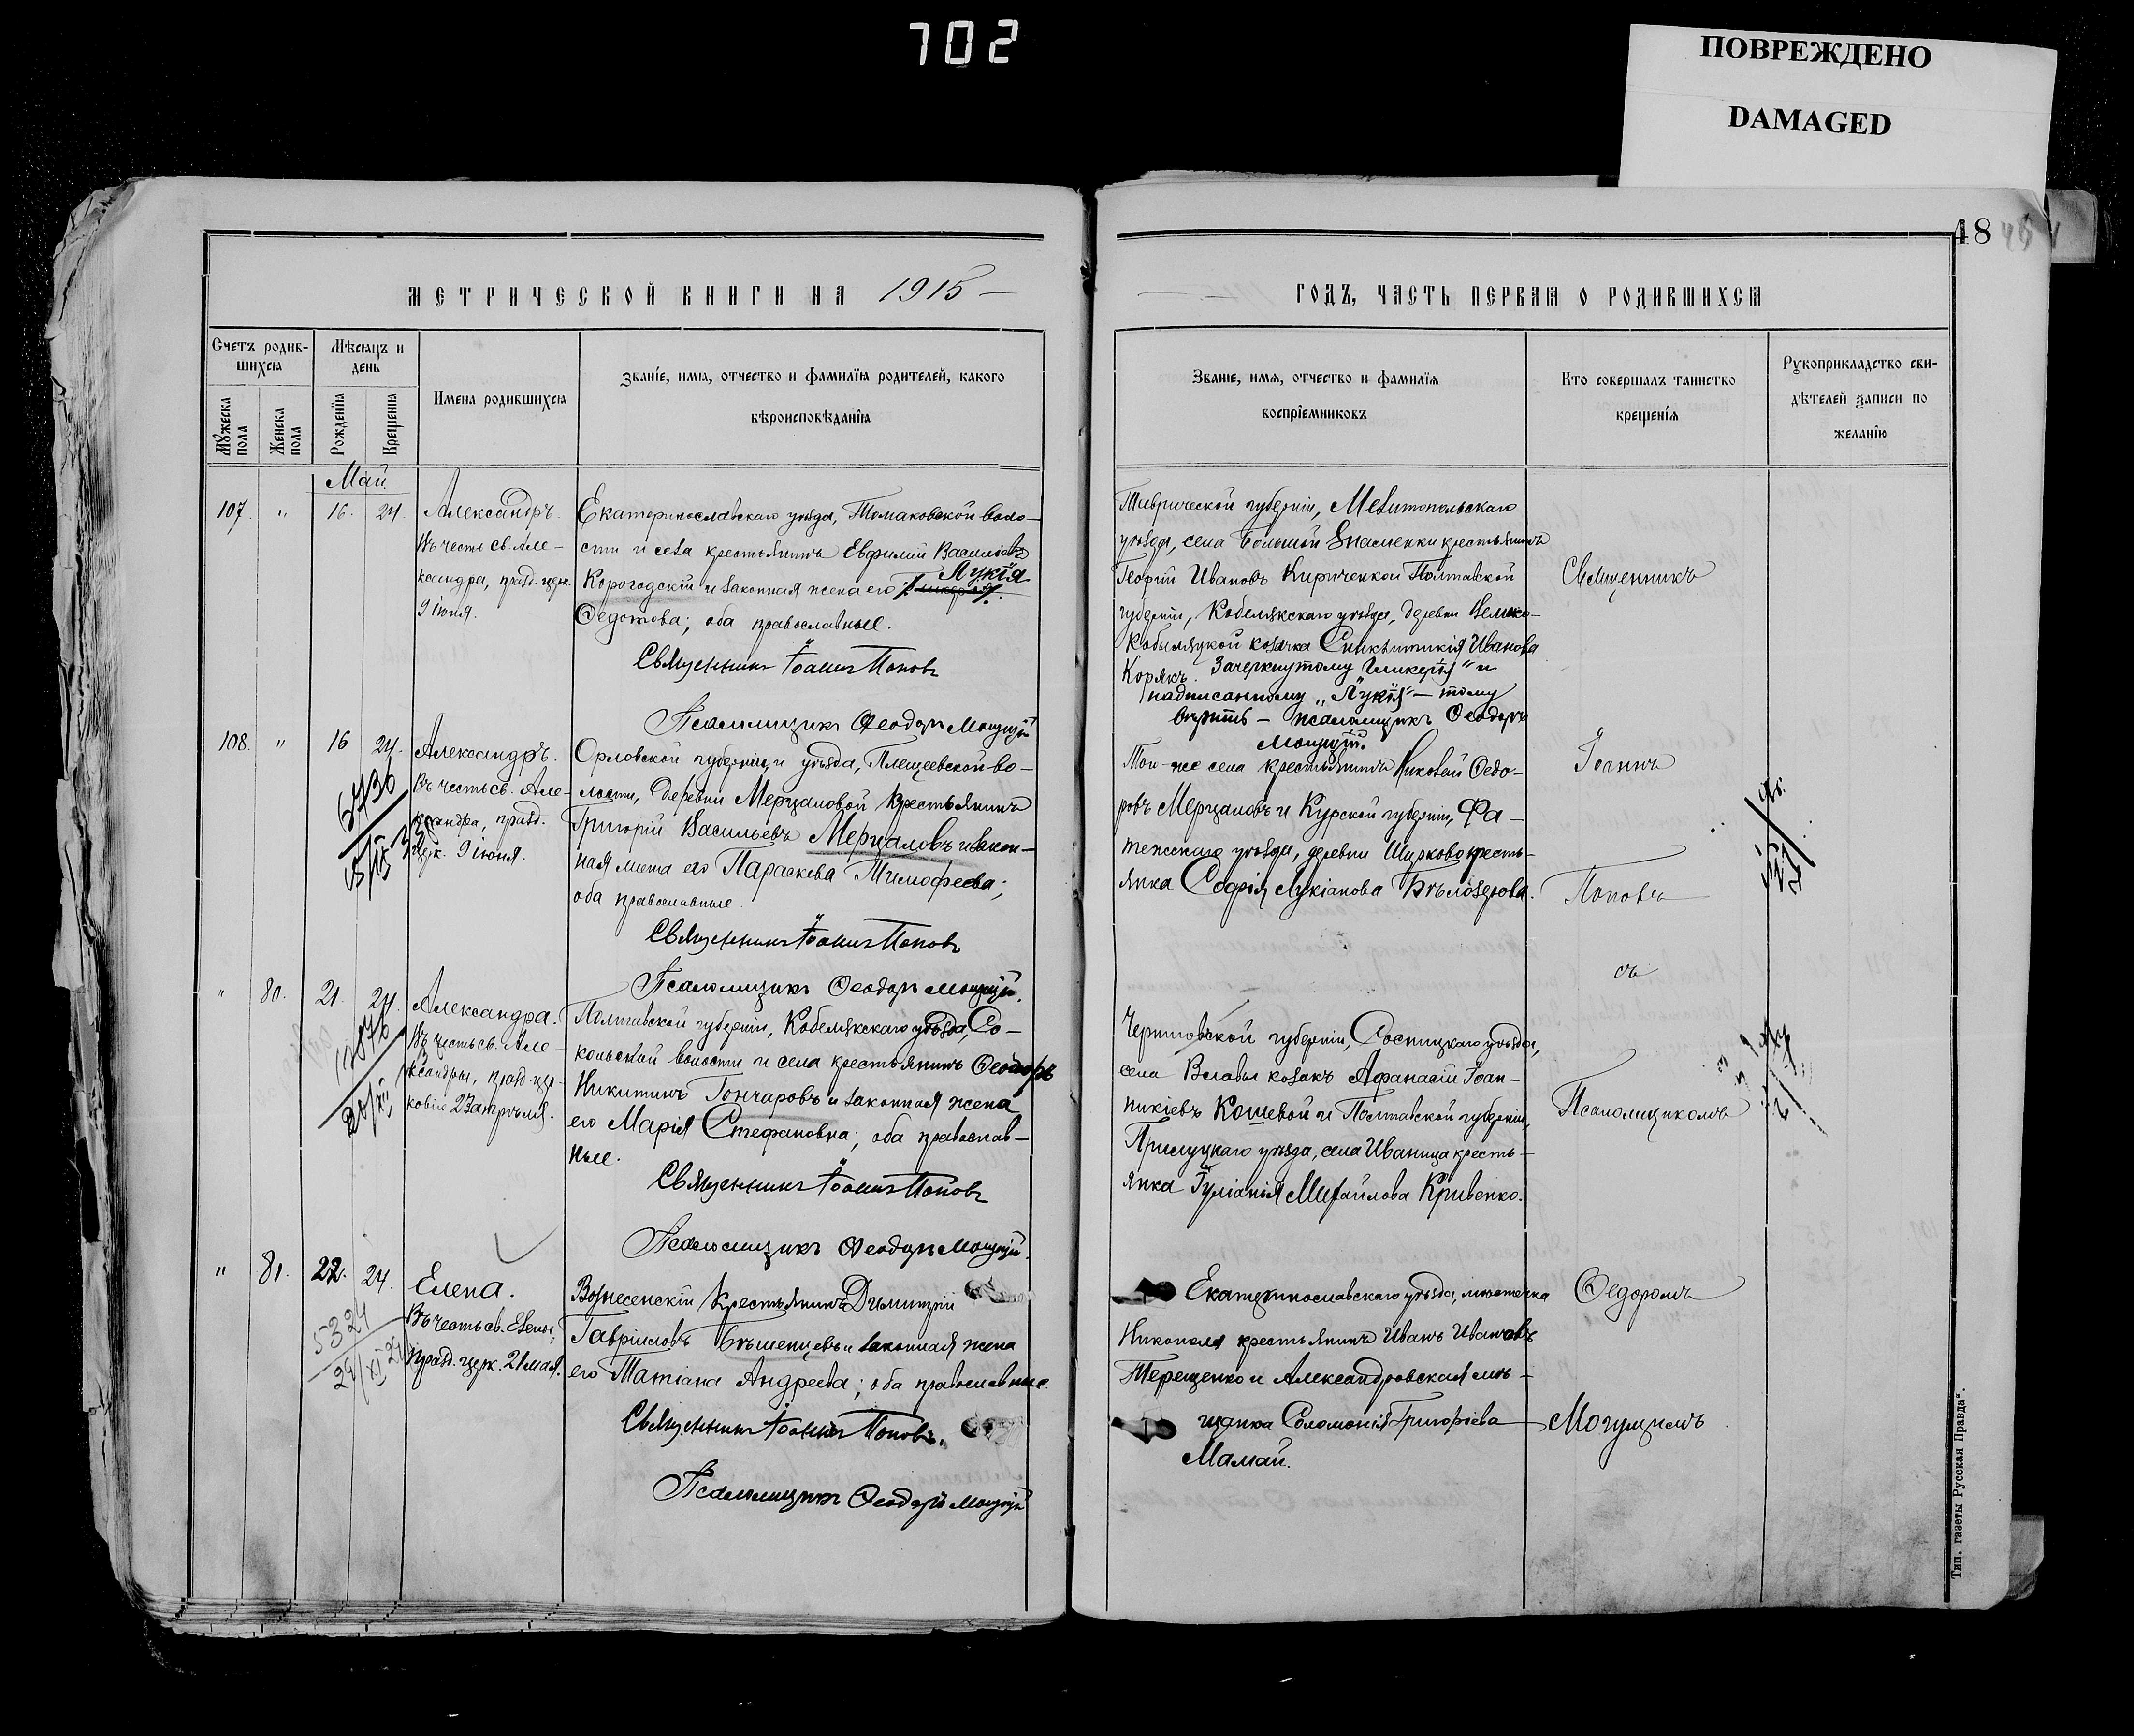 702
ПОВРЕЖДЕНО
DAMAGED
18
МЕТРИЧЕСКОЙ КНИГИ НА 1915 –
Счетъ родив-
шихся
Мѣсяцъ и
день
Мужеска
пола
Женска
пола
Рожденія
Крещенія
Имена родившихся
Званіе, имя, отчество и фамилія родителей, какого
вѣроисповѣданія
Май
107. " 16. 24.
Александръ.
Въ честь св. Але-
ксандра, празд. церк.
9 іюня.
Екатеринославскаго уѣзда, Томаковской воло-
сти и села крестьянинъ Евфимій Василіевъ
Лукія
Корогодскій и законная жена его
Федотова; оба православные.
Священникъ Іоаннъ Поповъ
Псаломщикъ Феодоръ
108. " 16 24.
Александръ.
Въ честь св. Але-
ксандра, празд.
церк. 9 іюня.
Орловской губерніи и уѣзда, Плещеевской во-
лости, деревни Мерцаловой крестьянинъ
Григорій Васильевъ Мерцаловъ и закон-
ная жена его Параскева Тимофеева;
оба православные.
Священникъ Іоаннъ Поповъ
Псаломщикъ Феодоръ
" 80. 21. 24.
Александра.
Въ честь св. Але-
ксандры, празд. цер-
ковію 23 апрѣля.
Полтавской губерніи, Кобелякскаго уѣзда, Со-
кольской волости и села крестьянинъ Феодоръ
Никитинъ Гончаровъ и законная жена
его Марія Стефановна; оба православ-
ные.
Священникъ Іоаннъ Поповъ
Псаломщикъ Феодоръ
" 81. 22. 24.
5324
Елена.
Въ честь св. Елены,
празд. церк. 21 мая.
Вознесенскій крестьянинъ Димитрій
Гавріиловъ и законная жена
его Татіана Андреева; оба православные.
Священникъ Іоаннъ Поповъ.
Псаломщикъ Феодоръ
ГОДЪ, ЧАСТЬ ПЕРВАЯ О РОДИВШИХСЯ
Званіе, имя, отчество и фамилія
воспріемниковъ
Кто совершалъ таинство
крещенія
Рукоприкладство сви-
дѣтелей записи по
желанію
Таврической губерніи, Мелитопольскаго
уѣзда, села Большой Знаменки крестьянинъ
Георгій Ивановъ Кириченко и Полтавской
губерніи, Кобелякскаго уѣзда, деревни Велико-
Кобиляцкой козачка Синклитикія Иванова
Корякъ. Зачеркнутому "Гликерія" и
надписанному "Лукія" – тому
вѣрить – псаломщикъ Феодоръ
Той-же села крестьянинъ Федо-
ровъ Мерцаловъ и Курской губерніи, Фа-
тежскаго уѣзда, деревни кресть-
янка Софія Лукіанова Бѣлозерова.
Черниговской губерніи, Сосницкаго уѣзда,
села козакъ Афанасій Іоан-
никіевъ Кошевой и Полтавской губерніи,
Прилуцкаго уѣзда, села Иваница кресть-
янка Іуліанія Михайлова Кривенко.
Екатеринославскаго уѣзда, мѣстечка
Никополя крестьянинъ Иванъ Ивановъ
Терещенко и Александровская мѣ-
щанка Соломонія Григоріева
Мамай.
Священникъ
Іоаннъ
Поповъ
съ
Псаломщикомъ
Федоромъ
Тип. газеты Русская Правда".